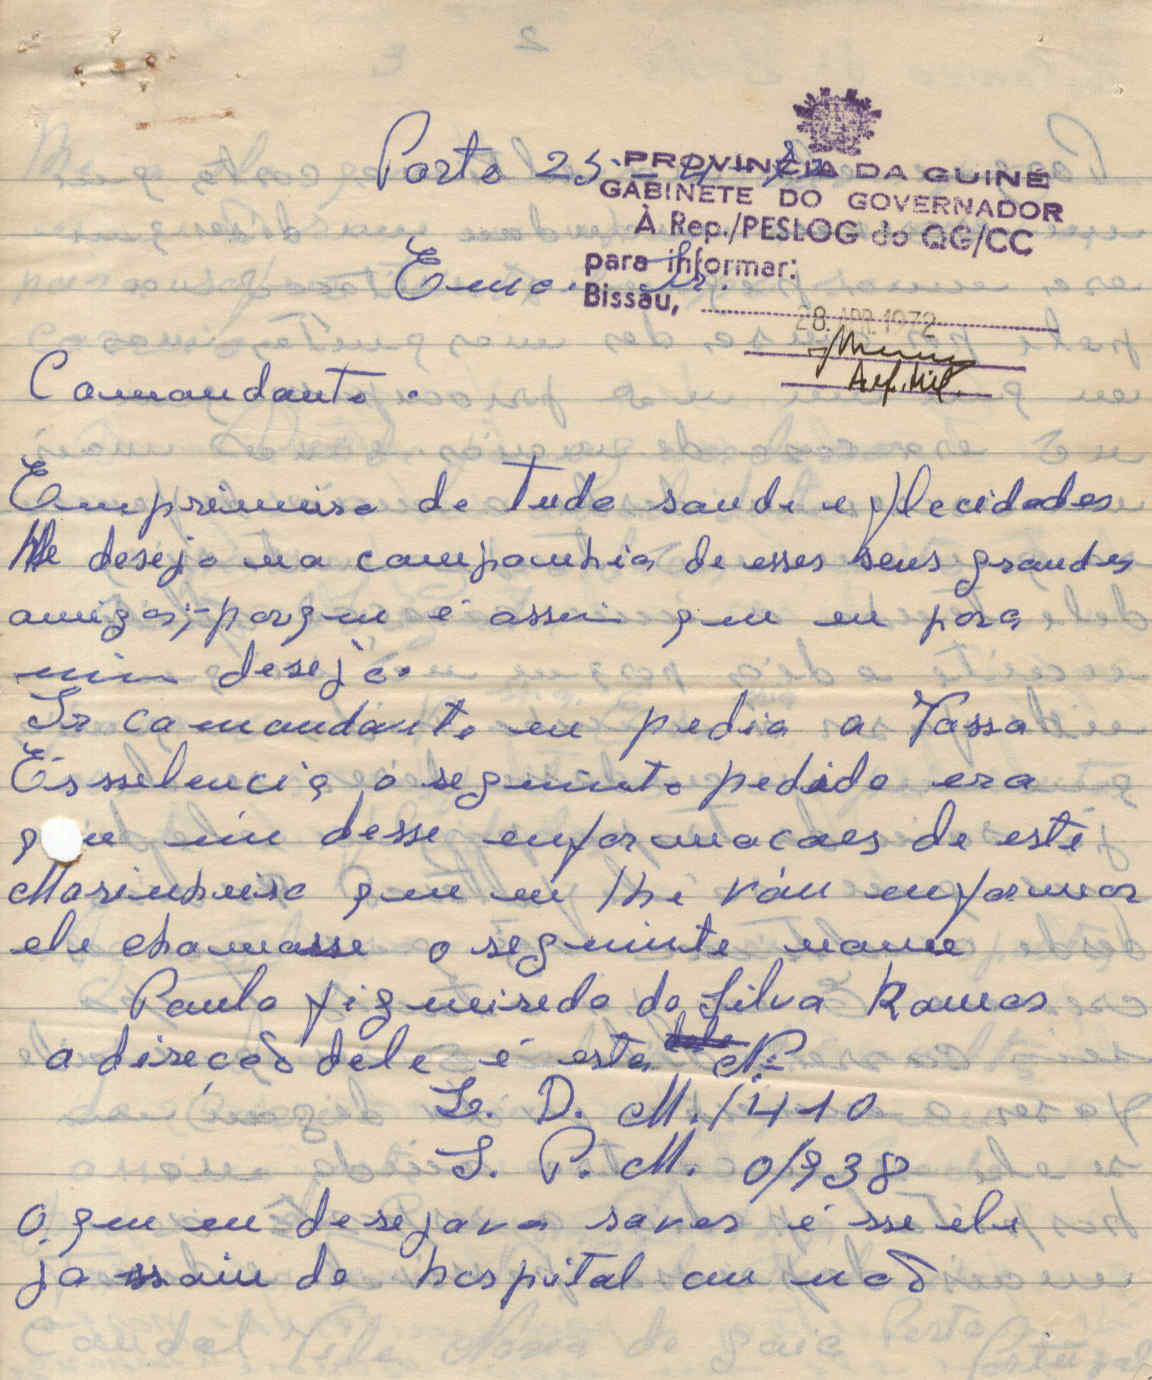 Porto 25-4-72
PROVINCIA DA GUINÉ
GABINETE DO GOVERNADOR
À Rep./PESLOG do QG/CC
para informar:
Bissau, 28. ABR. 1972
Alf. Mil.
Emo. Sr.
Comandante.
Emprimeiro de tudo saude e flecidades
lhe desejo na companhia de esses seus grandes
amigos;-porque é assim que eu para
mim desejo.
Sr comandante eu pedia a Vassa
Essselencia o seguinte pedido era
que mim desse enformacoes de este
Marinheiro que eu lhe vou enformar
ele chamasse o seguinte nome
Paulo figueiredo da Silva Ramos
a direcão dele é esta Nº
L. D. M./410
S. P. M. 0/938
O que eu desejava saver é sse ele
ja ssaiu do hospital ou não